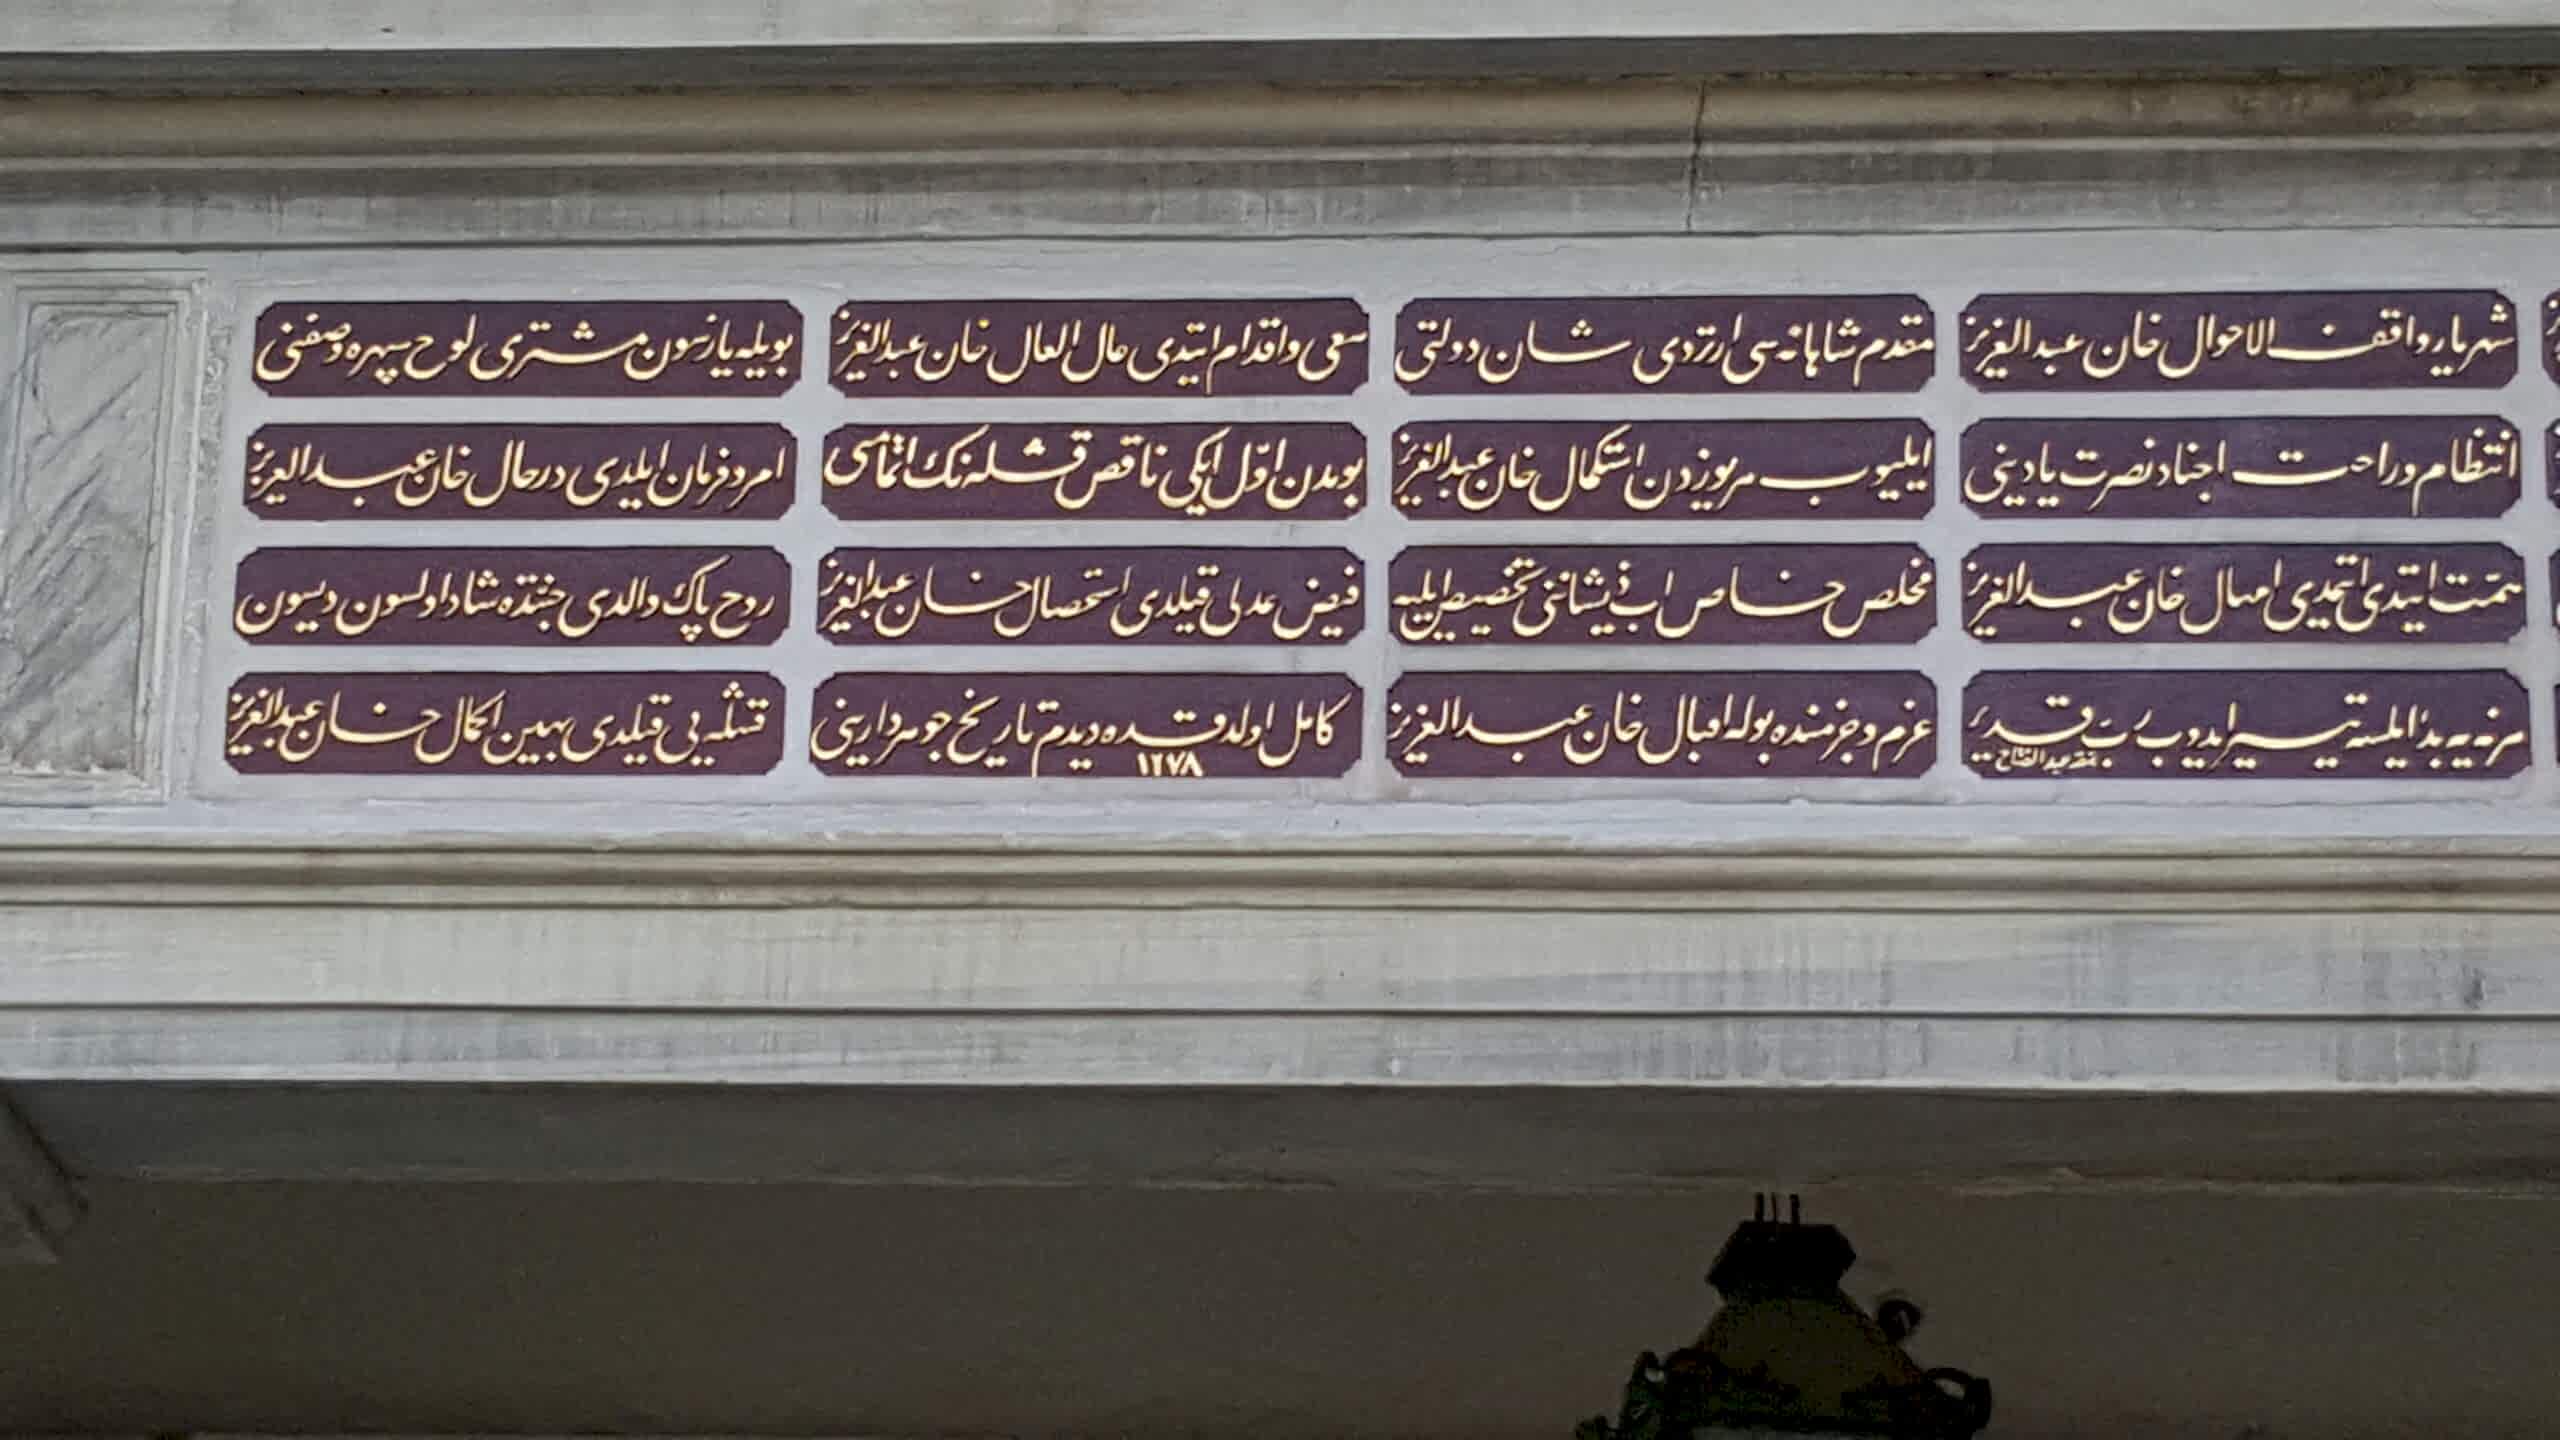 شهريار واقف الاحوال خان عبد العزيز
مقدم شاهانه سی ارتردی شان دولتی
سعی و اقدام ایتدی عال العال خان عبد العزيز
بویله یازسون مشتری لوح سپهره وصفنی
انتظام و راحت اجناد نصرت یادینی
ایلیوب مركوزدن استكمال خان عبد العزيز
بوندن اوّل ایكی ناقص قشله نك اتمامنی
امر و فرمان ایلدی درحال خان عبد العزيز
همّت ایتدی ایتمدی امهال خان عبد العزيز
مخلص خاص اب ذیشاننی تخصیص ایله
فیض عدلی قیلدی استحصال خان عبد العزيز
روح پاك والدی جنتده شاد اولسون دیسون
ربّ قدیر
عزم و جزمنده بوله اقبال خان عبد العزيز
كامل اولدقده دیدم تاریخ جوهردارینی ١٢٧٨
قشله یی قیلدی بهین اكمال خان عبد العزيز
عبد الفتاح